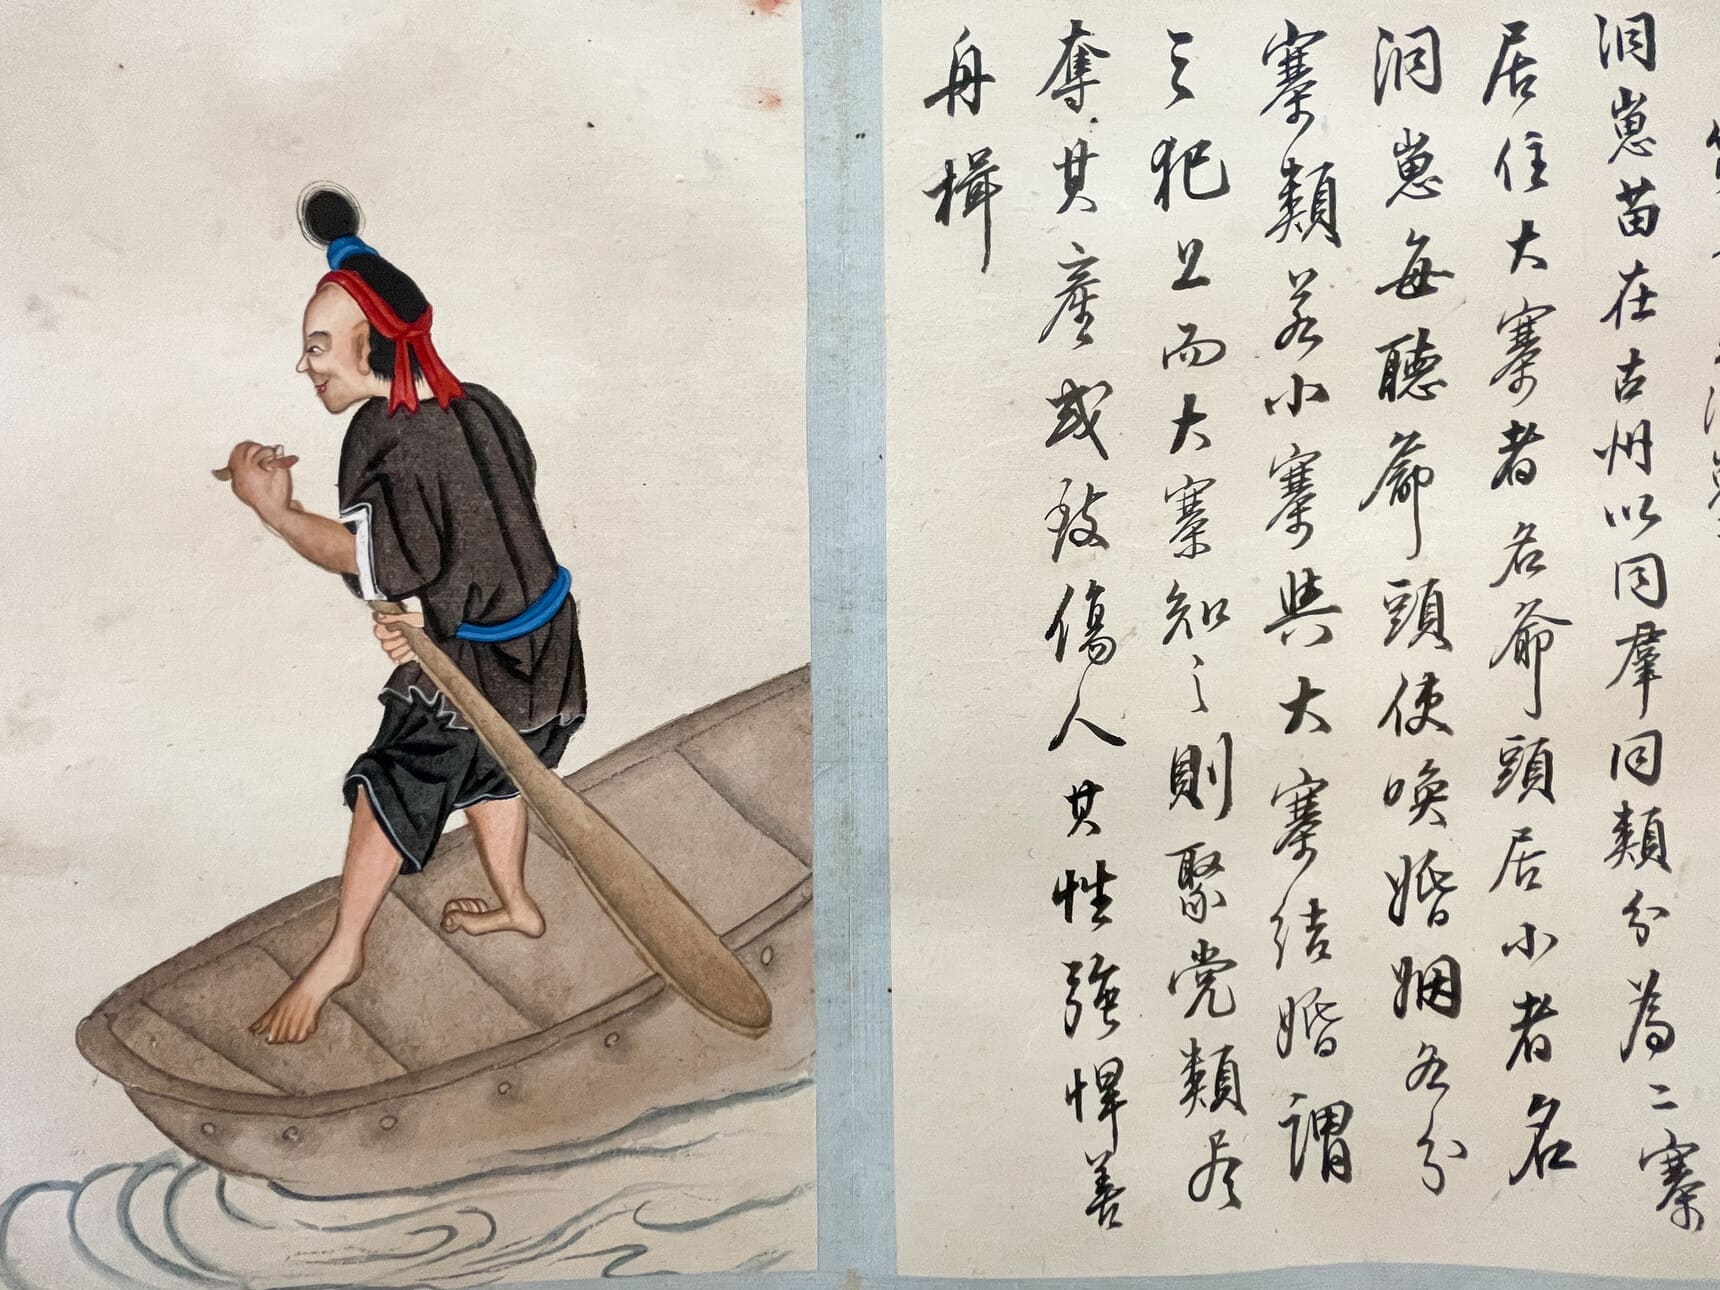 洞崽苗在古州以同羣同類分為二寨
居住大寨者名爺頭居小者名
洞崽每聽爺頭使喚婚姻各分
寨類若小寨與大寨结婚謂
之犯上而大寨知之則聚党類尽
奪其產或致傷人其性強悍善
舟楫